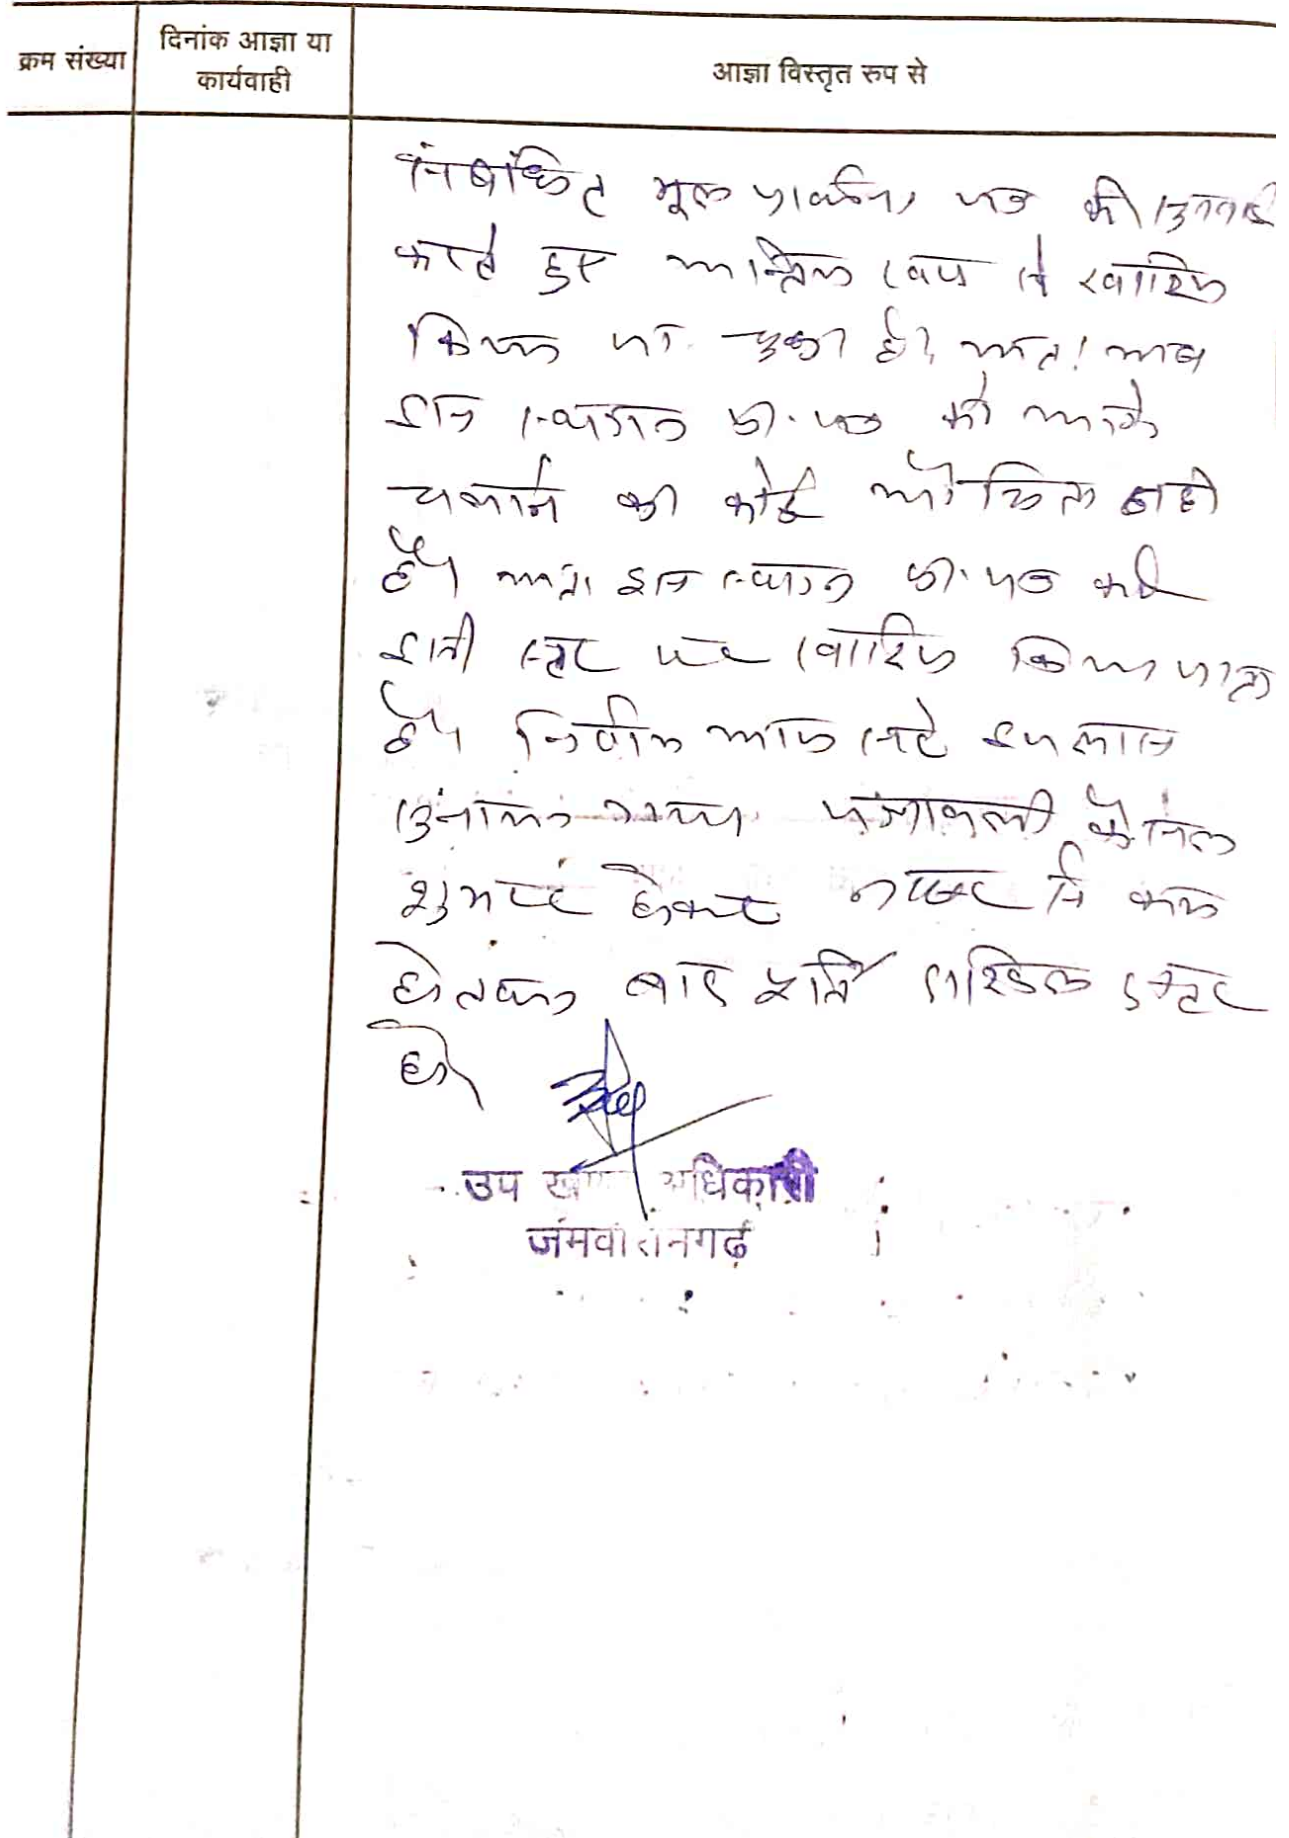 क्रम संख्या
दिनांक आज्ञा या
कार्यवाही
आज्ञा विस्तृत रुप से
मूल प्रार्थना पत्र की सुनवाई
करते हुए अन्तिम रूप से खारिज
किया जा चुका है। अतः अब
इस स्थगन प्रा. पत्र को आगे
चलाने का कोई औचित्य नही
है। अतः इस स्थगन प्रा. पत्र को
इसी स्तर पर खारिज किया जाता
है। निर्णय आज सरे इजलास
सुनाया गया पत्रावली फैसल
शुमार होकर नम्बर से कम
हो तथा बाद दाखिल दफ्तर
हो।
उप खण्ड अधिकारी
जमवारामगढ़